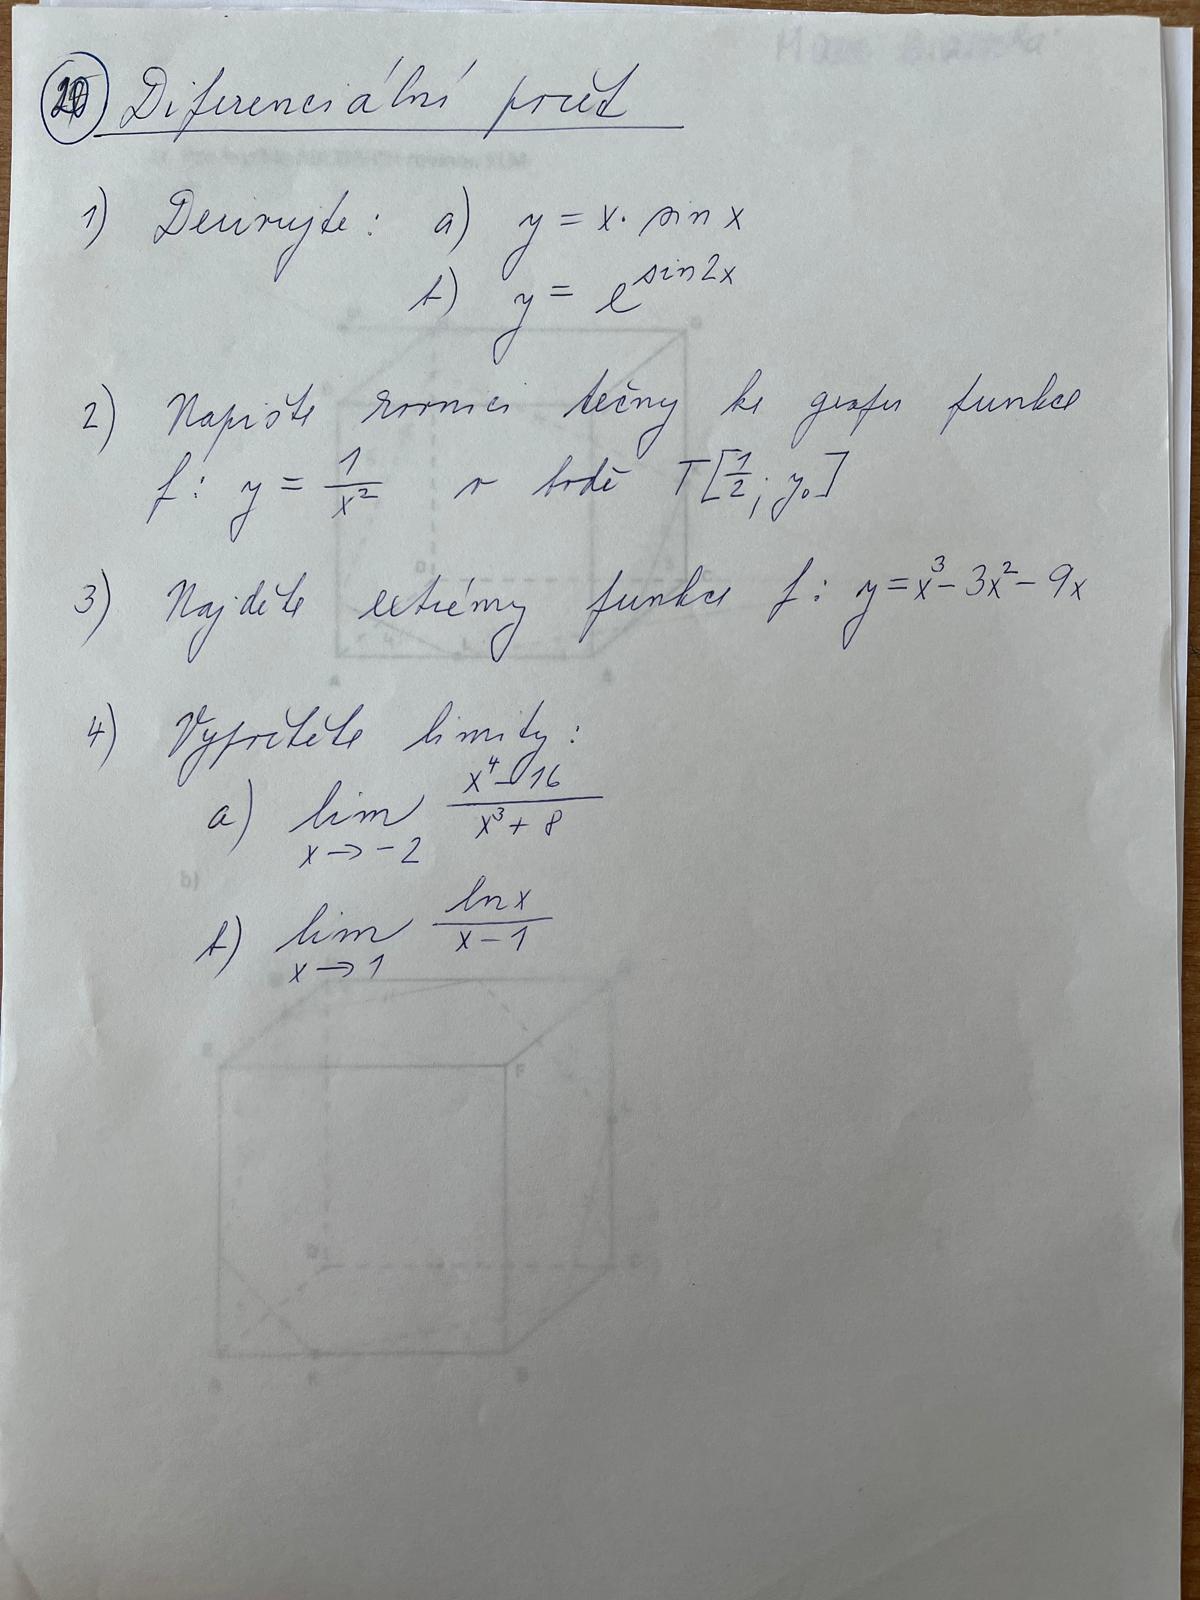 Diferenciální počet
1) Derivujte: a) y = x· sin x
b) y = e^sin2x
2) Napište rovnici tečny ke grafu funkce
f: y = 1/x² v bodě T[1/2; y₀]
3) Najděte extrémy funkce f: y = x³ - 3x² - 9x
4) Vypočtěte limity:
a) lim x→-2 x⁴-16 / x³+8
b)
b) lim x→1 ln x / x-1
F